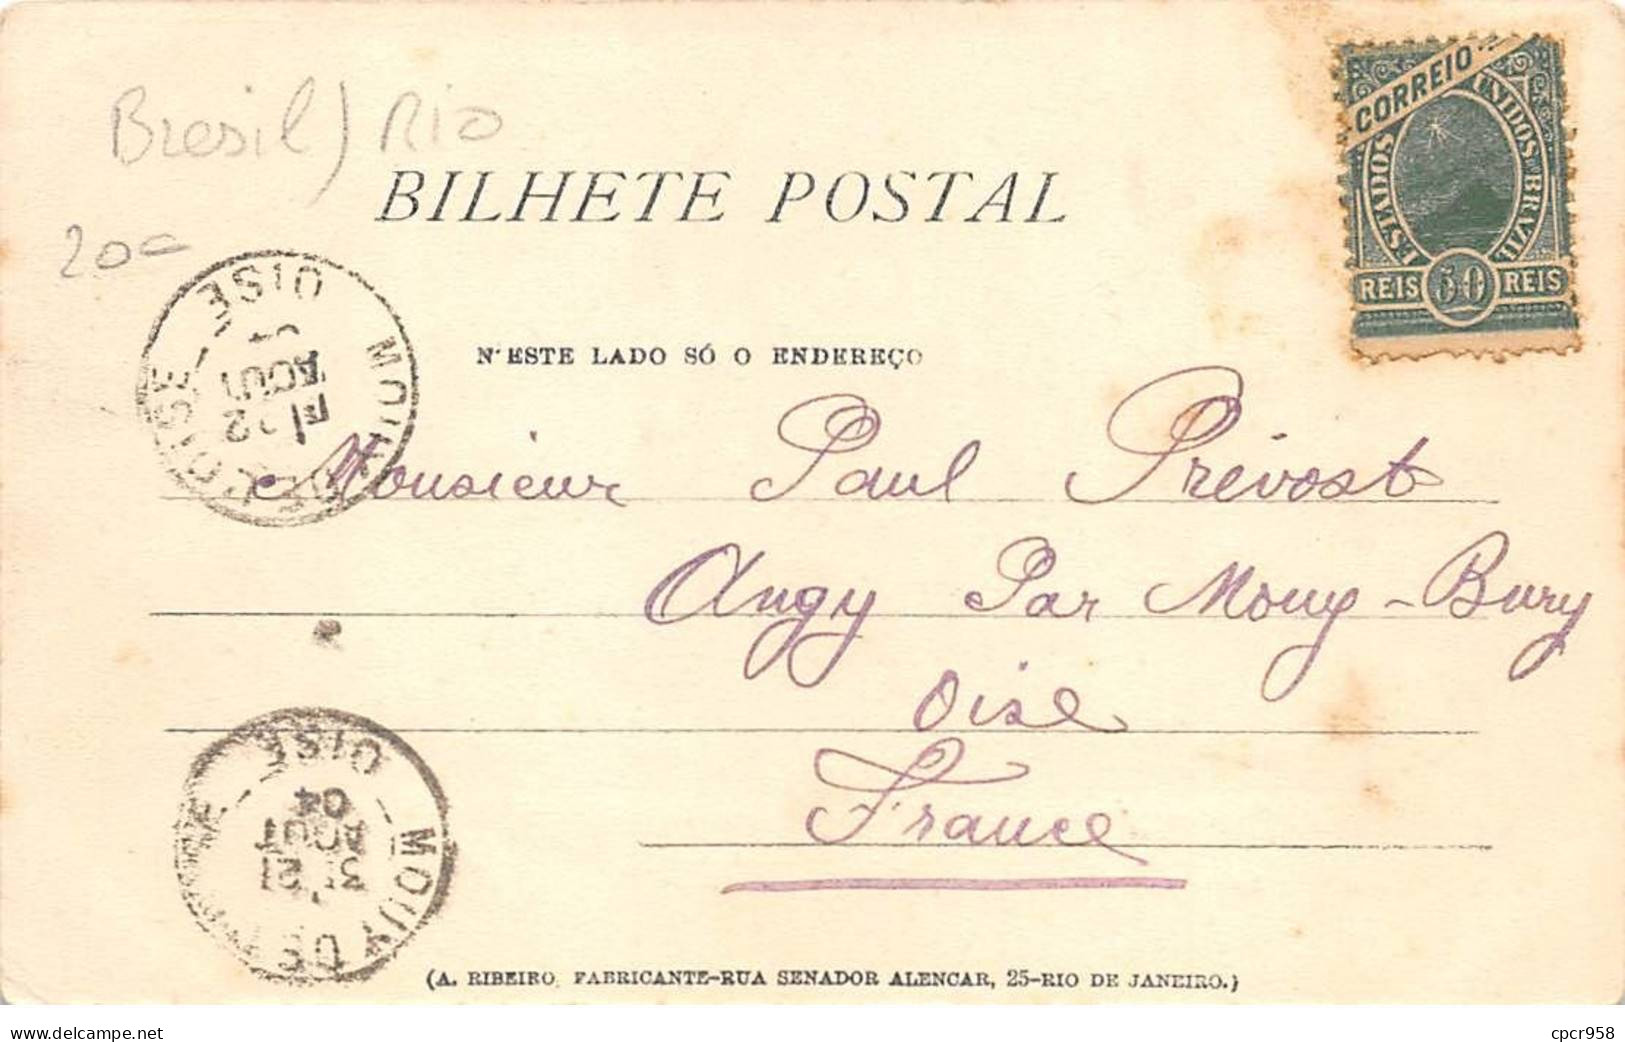 Bresil) Rio
BILHETE POSTAL
20=
CORREIO
ESTADOS UNIDOS DO BRAZIL
REIS 50 REIS
N'ESTE LADO SÓ O ENDEREÇO
OISE
AOUT
E 22
Monsieur Paul Prévost
Angy Par Mouy-Bury
Oise
France
MOUY DE
OISE
3E 21
AOUT
04
(A. RIBEIRO, FABRICANTE-RUA SENADOR ALENCAR, 25-RIO DE JANEIRO.)
www.delcampe.net
cpcr958